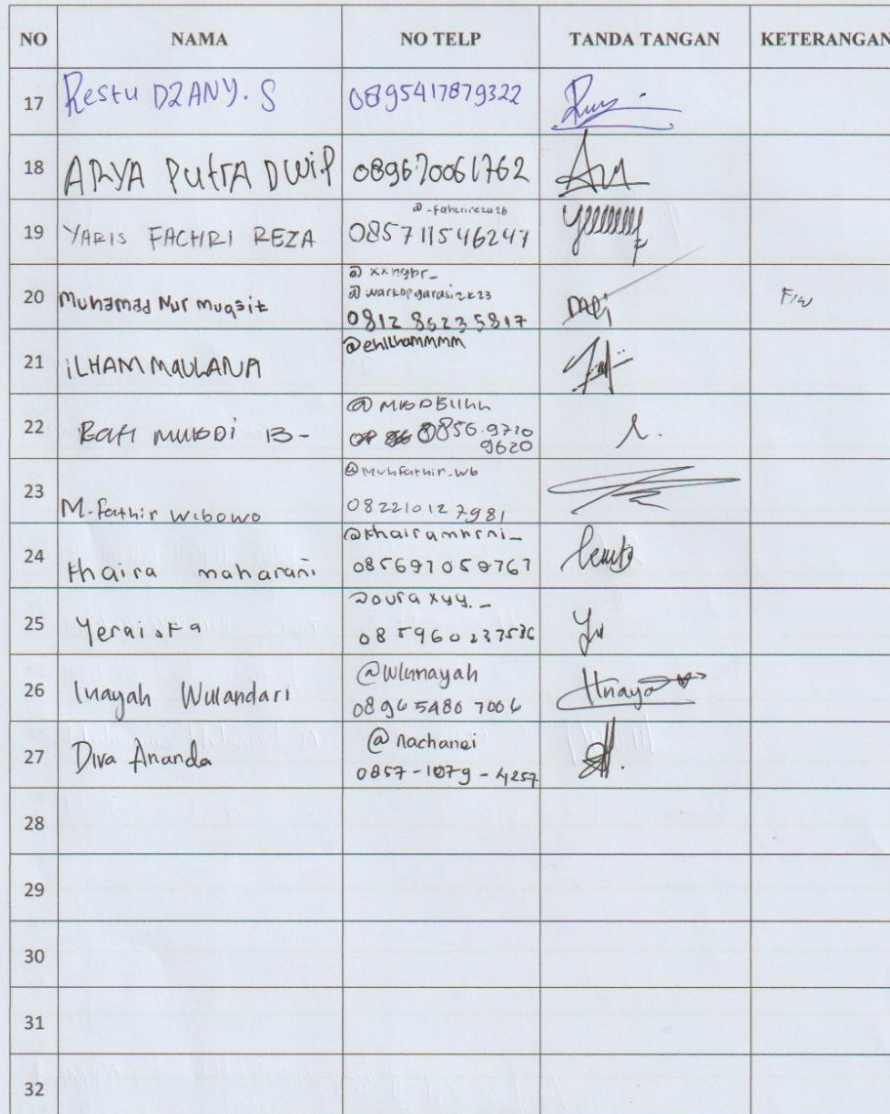 NO NAMA NO TELP TANDA TANGAN KETERANGAN
17 Restu DZANY. S 0895417879322
18 ARYA PUtrA DWiP 089670061762
19 YARIS FACHRI REZA 085711546247
20 Muhamad Nur muqsit @xxngbr_
@warkopgarasi2k23
0812 8623 5817 F/W
21 iLHAM MAULANA @ehilhammmm
22 0856.9710
9620
23 M.Fathir wibowo @Muhfathir.wb
082210127981
24 Khaira maharani @khairamhrni_
085697050767
25 Yeraiska @ouraxyy._
085960237536
26 Inayah Wulandari @wlnnayah
0896 5480 7006
27 Diva Ananda @nachanei
0857-1079-4257
28
29
30
31
32